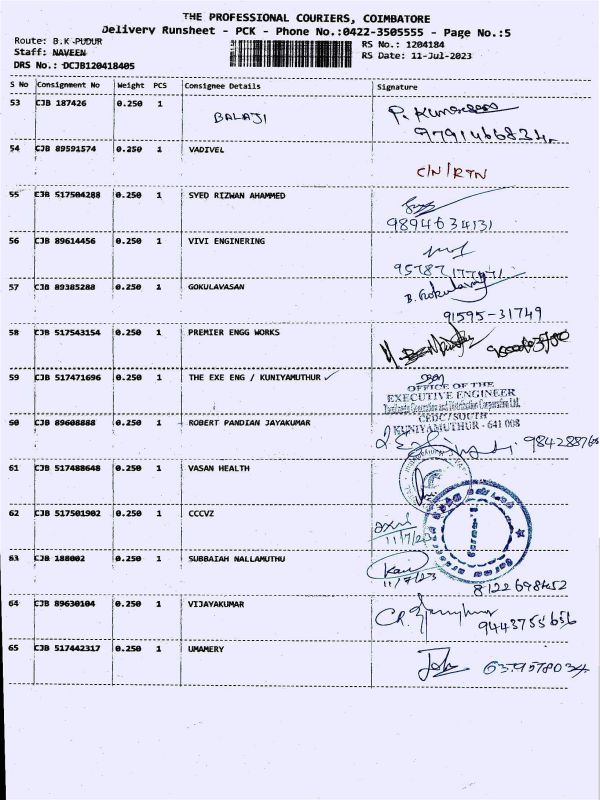 THE PROFESSIONAL COURIERS, COIMBATORE
Delivery Runsheet - PCK - Phone No.:0422-3505555 - Page No.:5
Route: B.K-PUDUR
RS No.: 1204184
Staff: NAVEEN
RS Date: 11-Jul-2023
DRS No.: DCJB120418405
S No Consignment No Weight PCS Consignee Details Signature
53 CJB 187426 0.250 1 BALAJI P.
54 CJB 89591574 0.250 1 VADIVEL C/N/RTN
55 CJB 517504288 0.250 1 SYED RIZWAN AHAMMED
9894634131
56 CJB 89614456 0.250 1 VIVI ENGINERING
57 CJB 89385288 0.250 1 GOKULAVASAN B. Gokulavasan
91595-31749
58 CJB 517543154 0.250 1 PREMIER ENGG WORKS
59 CJB 517471696 0.250 1 THE EXE ENG / KUNIYAMUTHUR ✓
OFFICE OF THE
EXECUTIVE ENGINEER
Tamilnadu Generation and Distribution Corporation Ltd.
CEDC/SOUTH
KUNIYAMUTHUR - 641 008
60 CJB 89608888 0.250 1 ROBERT PANDIAN JAYAKUMAR
61 CJB 517488648 0.250 1 VASAN HEALTH
62 CJB 517501902 0.250 1 CCCVZ
11/7/23
63 CJB 188002 0.250 1 SUBBAIAH NALLAMUTHU
11/7/23
64 CJB 89630104 0.250 1 VIJAYAKUMAR
9443755656
65 CJB 517442317 0.250 1 UMAMERY